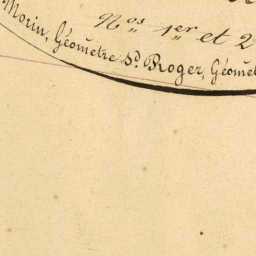 Nos 1er et 2
Morin, Géomètre Sd. Roger, Géomèt